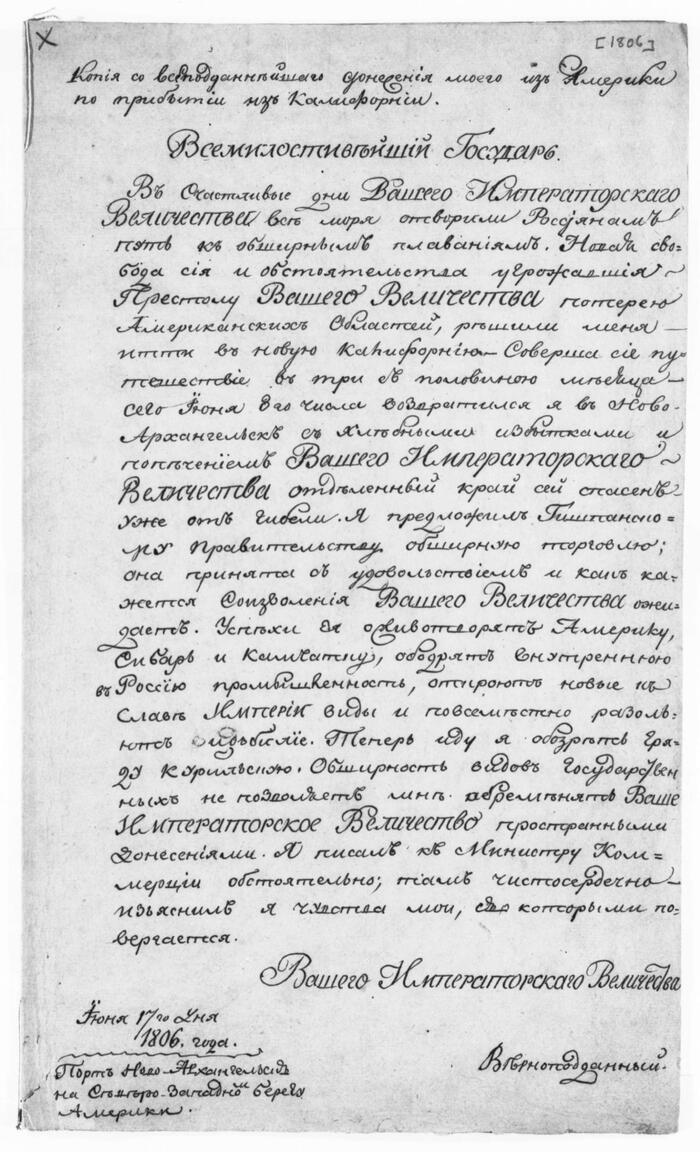 [1806]
Копія со всеподданнѣйшаго донесенія моего изъ Америки
по прибытіи изъ Калифорніи.
Всемилостивѣйшій Государь.
Въ счастливые дни Вашего Императорскаго
Величества всѣ моря отворили Россіянамъ
путь къ обширнымъ плаваніямъ. Новая сво-
бода сія и обстоятельства угрожавшія
Престолу Вашего Величества потерею
Американскихъ Областей, рѣшили меня
итти въ новую Калифорнію. Соверша сіе пу-
тешествіе въ три съ половиною мѣсяца
сего Іюня 8го числа возвратился я въ Ново-
Архангельскъ съ хлѣбными избытками и
попеченіемъ Вашего Императорскаго
Величества отдѣленный край сей спасенъ
уже отъ гибели. Я предложилъ Гишпанско-
му правительству обширную торговлю;
она принята съ удовольствіемъ и какъ ка-
жется Соизволенія Вашего Величества ожи-
даетъ. Успѣхи Ея оживотворятъ Америку,
Сибирь и Камчатку, ободрятъ внутреннюю
въ Россію промышленность, откроютъ новые къ
Славѣ Имперіи виды и повсемѣстно разоль-
ютъ изъобиліе. Теперь иду я обозрѣть гря-
ду курильскую. Обширность видовъ государствен-
ныхъ не позволяетъ мнѣ обремѣнять Ваше
Императорское Величество пространными
донесеніями. Я писалъ къ Министру Ком-
мерціи обстоятельно; тамъ чистосердечно
изъяснилъ я чувства мои, съ которыми по-
вергается.
Вашего Императорскаго Величества
Іюня 17го дня
1806. года.
Вѣрноподданный.
Портъ Ново-Архангельскъ
на Сѣверо-Западномъ берегу
Америки.